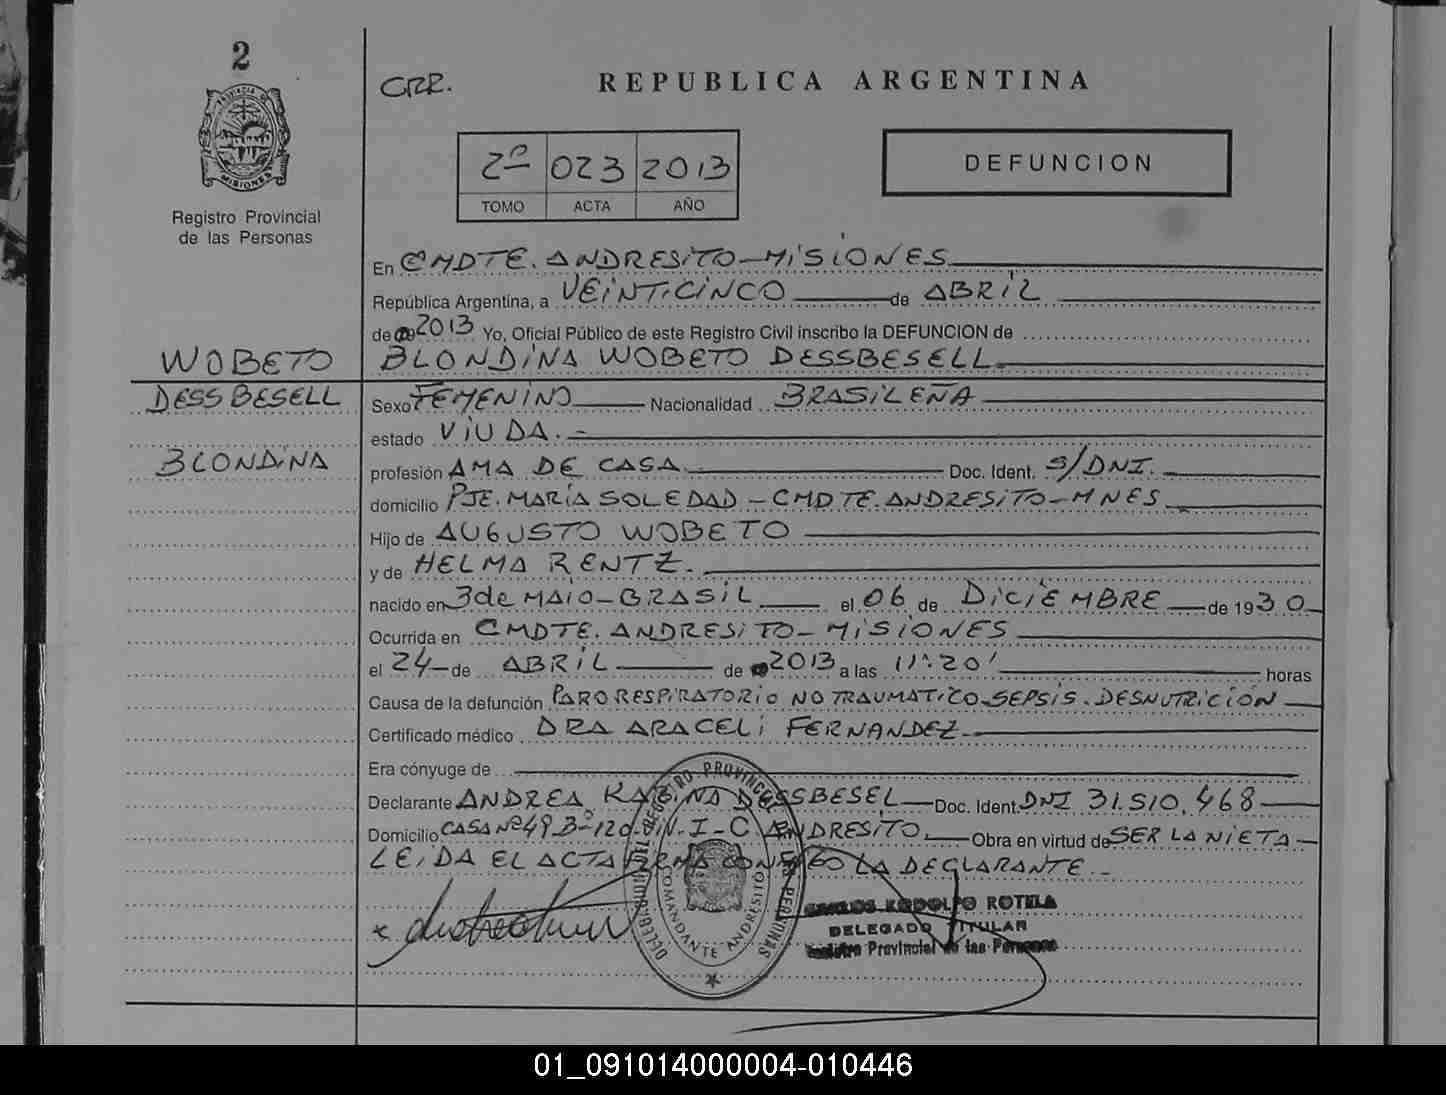 2
CRR.
REPUBLICA ARGENTINA
PROVINCIA DE
MISIONES
Registro Provincial
de las Personas
2º 023 2013
TOMO ACTA AÑO
DEFUNCION
En CMDTE. ANDRESITO-MISIONES
República Argentina, a VEINTICINCO de ABRIL
de 2013 Yo, Oficial Público de este Registro Civil inscribo la DEFUNCION de
WOBETO BLONDINA WOBETO DESSBESELL
DESSBESELL Sexo FEMENINO Nacionalidad BRASILEÑA
estado VIUDA.-
BLONDINA profesión AMA DE CASA. Doc. Ident. S/DNI.
domicilio PJE. MARIA SOLEDAD - CMDTE. ANDRESITO-MNES
Hijo de AUGUSTO WOBETO
y de HELMA RENTZ.
nacido en 3 de MAIO-BRASIL el 06 de DICIEMBRE de 1930
Ocurrida en CMDTE. ANDRESITO-MISIONES
el 24 de ABRIL de 2013 a las 11:20' horas
Causa de la defunción PARO RESPIRATORIO NO TRAUMATICO-SEPSIS. DESNUTRICIÓN
Certificado médico DRA ARACELI FERNANDEZ
Era cónyuge de
Declarante ANDREA KARINA DESSBESEL Doc. Ident. DNI 31.510.468
Domicilio CASA Nº 49 Bº 120-V.-I-C. ANDRESITO. Obra en virtud de SER LA NIETA-
LEIDA EL ACTA FIRMA CONMIGO LA DECLARANTE.-
DELEGACION DEL REGISTRO PROVINCIAL DE LAS PERSONAS
COMANDANTE ANDRESITO
CARLOS RODOLFO ROTELA
DELEGADO TITULAR
Registro Provincial de las Personas
01_091014000004-010446